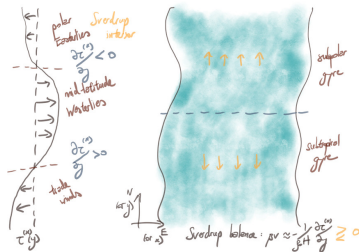 polar
Easterlies
Sverdrup
interior
∂τ⁽ˣ⁾/∂y < 0
mid-latitude
Westerlies
∂τ⁽ˣ⁾/∂y > 0
trade
winds
τ⁽ˣ⁾(y)
N
(or y)
E
(or x)
subpolar
gyre
subtropical
gyre
Sverdrup balance: βv ≈ - 1/ρ̄H ∂τ⁽ˣ⁾/∂y ≷ 0